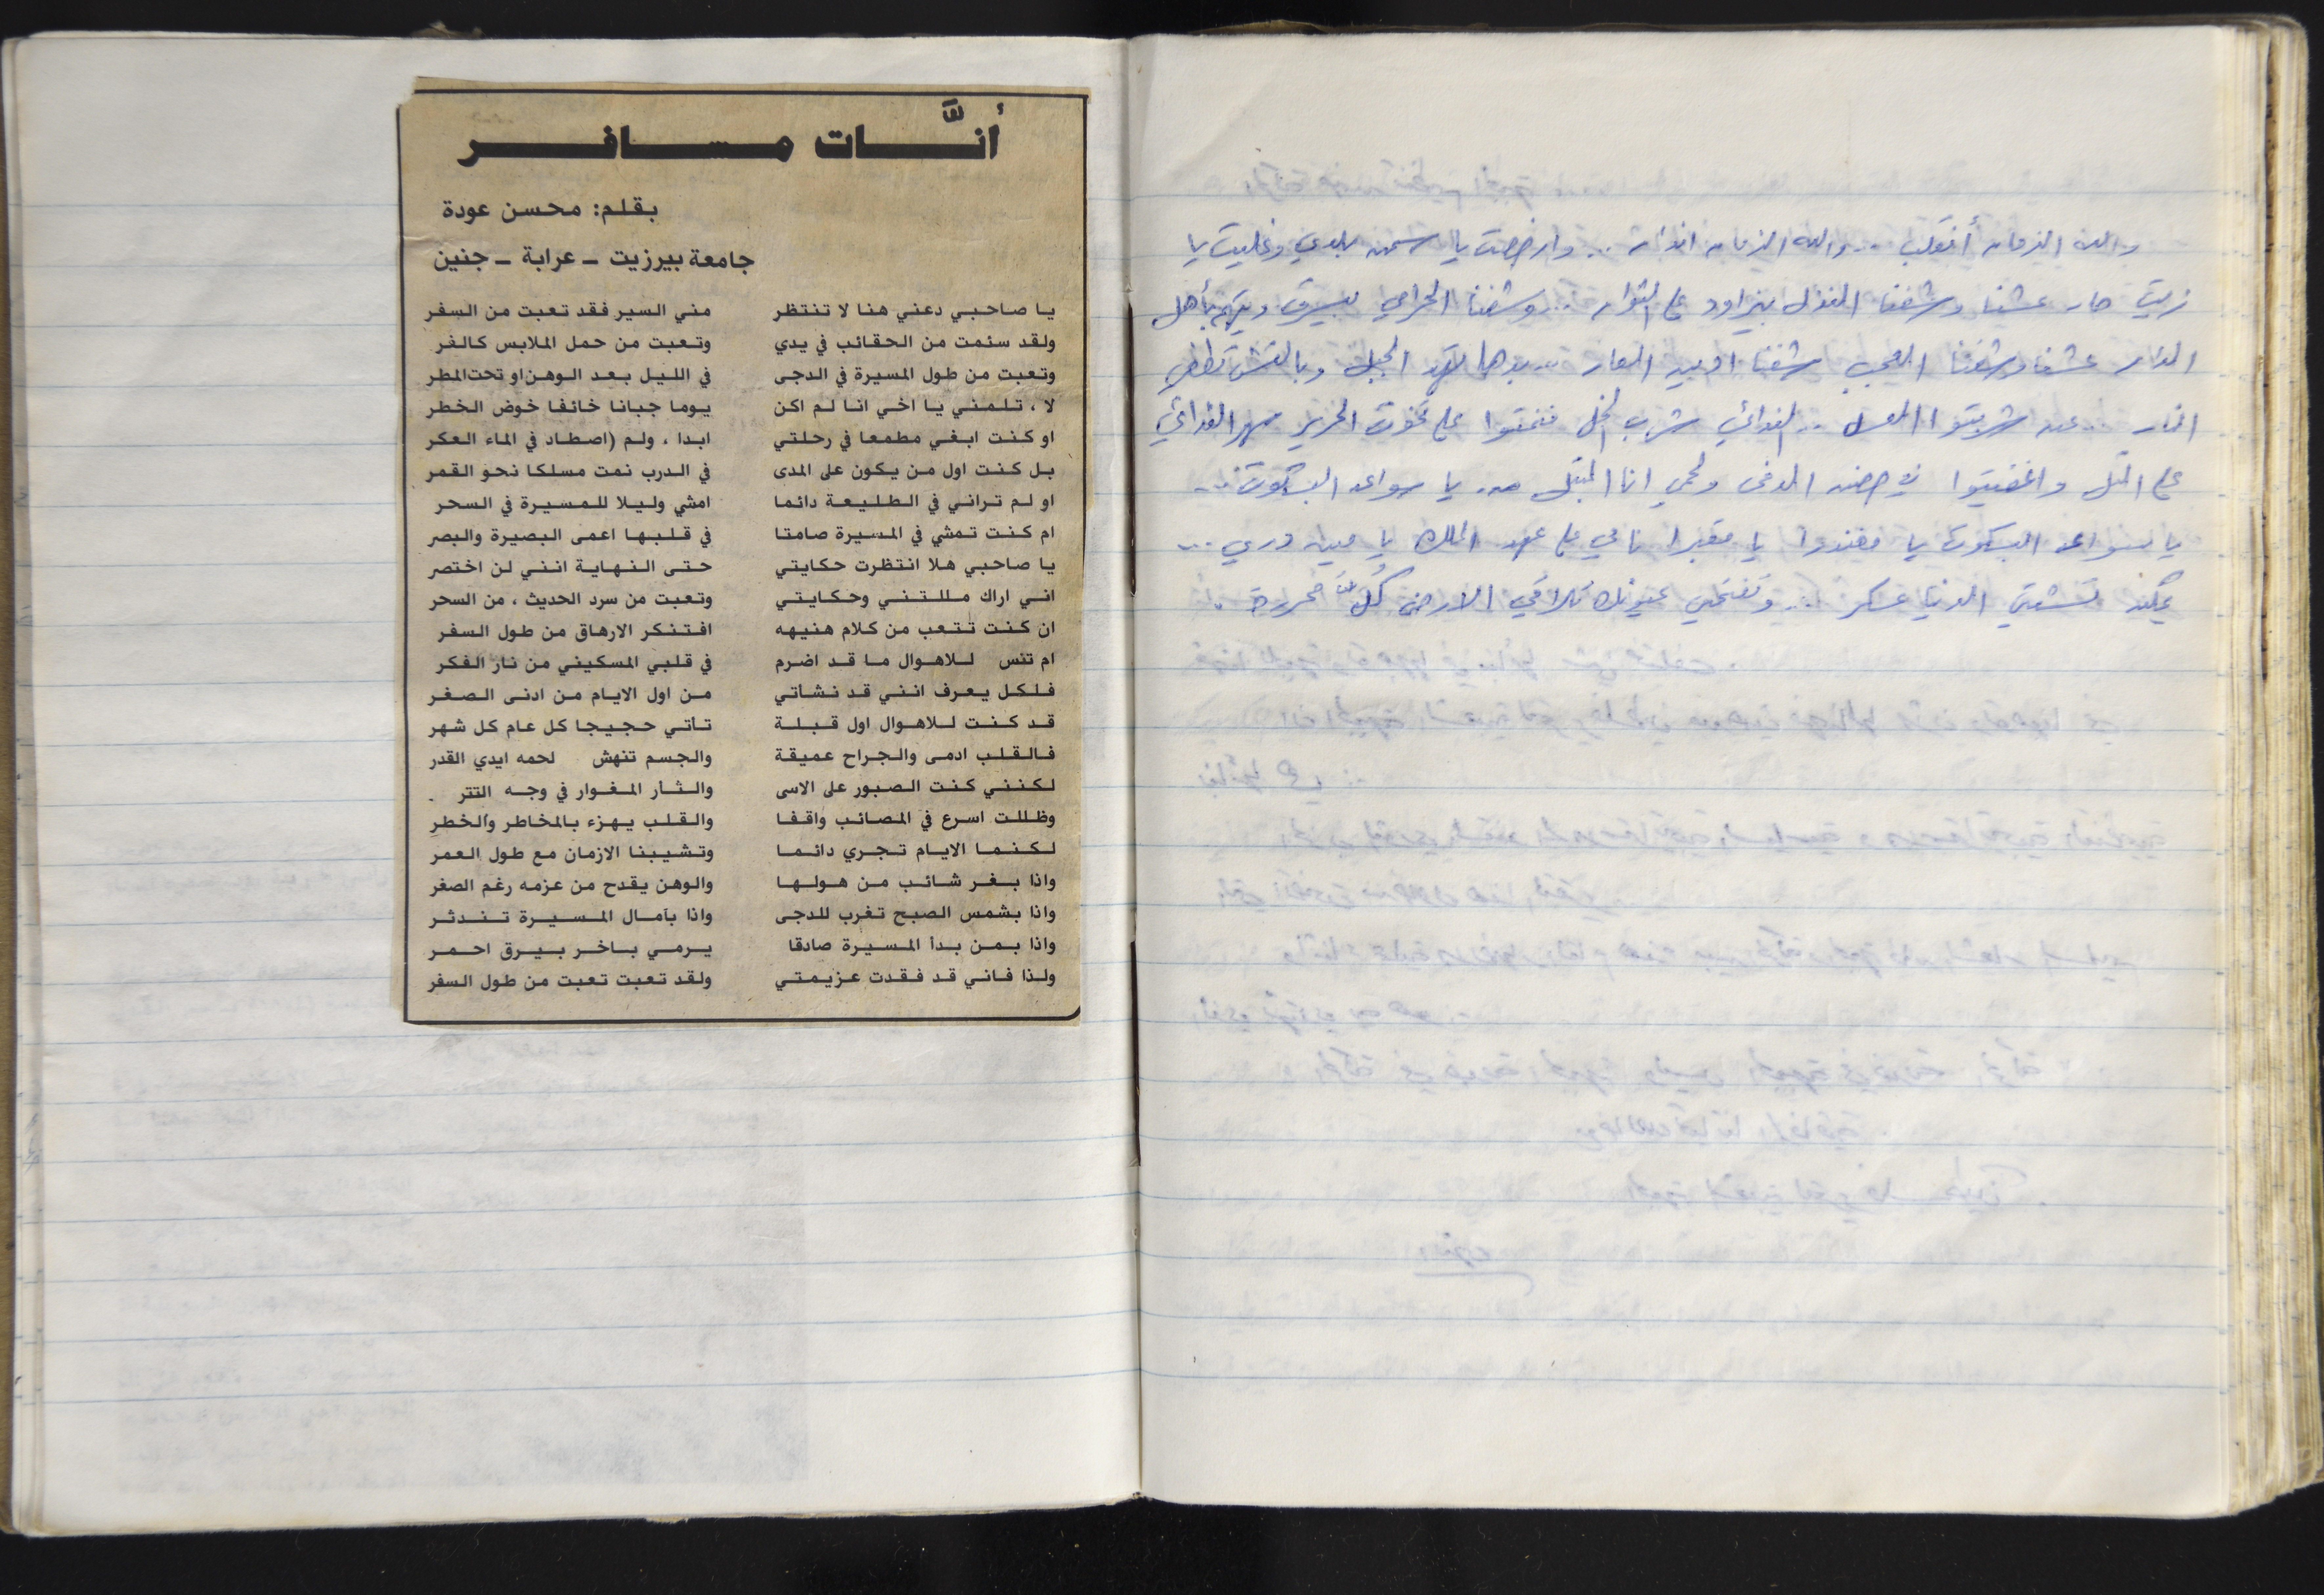 والله الزمان أنقلب ... والله الزمان اندار ... وارخصت يا سمن بلدي وغليت يا
زيت حار عشنا وشفنا النذل بيزاود على الثوار ... وشفنا الحرامي بيسرق ويتهم بأهل
الدار عشنا وشفنا العجب شفنا العار ... بدها تهد الجبل وبالقش تطفي
النار ... عن شربتوا العسل ... الفدائي شرب الخل فنمتوا على تخوت الحرير سهر الفدائي
على التل واغفيتوا في حضن الدفى ولحمي انا المبتل يا سواعد البسكوت ...
يا سواعد البسكوت يا يا على عهد الملك يا مين دري ...
يمكن تشتي الدنيا عسكر ... وتفتحي عينك تلاقي الارض كل محررة .
أنـَّـات مـسـافـر
بقلم: محسن عودة
جامعة بيرزيت ـ عرابة ـ جنين
يا صاحبي دعني هنا لا تنتظر مني السير فقد تعبت من السفر
ولقد سئمت من الحقائب في يدي وتعبت من حمل الملابس كالغر
وتعبت من طول المسيرة في الدجى في الليل بعد الوهن او تحت المطر
لا ، تلمني يا اخي انا لم اكن يوما جبانا خائفا خوض الخطر
او كنت ابغي مطمعا في رحلتي ابدا ، ولم (اصطاد في الماء العكر
بل كنت اول من يكون على المدى في الدرب نمت مسلكا نحو القمر
او لم تراني في الطليعة دائما امشي وليلا للمسيرة في السحر
ام كنت تمشي في المسيرة صامتا في قلبها اعمى البصيرة والبصر
يا صاحبي هلا انتظرت حكايتي حتى النهاية انني لن اختصر
اني اراك مللتني وحكايتي وتعبت من سرد الحديث ، من السحر
ان كنت تتعب من كلام هنيهه افتنكر الارهاق من طول السفر
ام تنس للاهوال ما قد اضرم في قلبي المسكيني من نار الفكر
فلكل يعرف انني قد نشاتي من اول الايام من ادنى الصغر
قد كنت للاهوال اول قبلة تاتي حجيجا كل عام كل شهر
فالقلب ادمى والجراح عميقة والجسم تنهش لحمه ايدي القدر
لكنني كنت الصبور على الاسى والثأر المغوار في وجه التتر .
وظللت اسرع في المصائب واقفا والقلب يهزء بالمخاطر والخطر
لكنما الايام تجري دائما وتشيبنا الازمان مع طول العمر
واذا بغر شائب من هولها والوهن يقدح من عزمه رغم الصغر
واذا بشمس الصبح تغرب للدجى واذا بآمال المسيرة تندثر
واذا بمن بدأ المسيرة صادقا يرمي باخر بيرق احمر
ولذا فاني قد فقدت عزيمتي ولقد تعبت تعبت من طول السفر